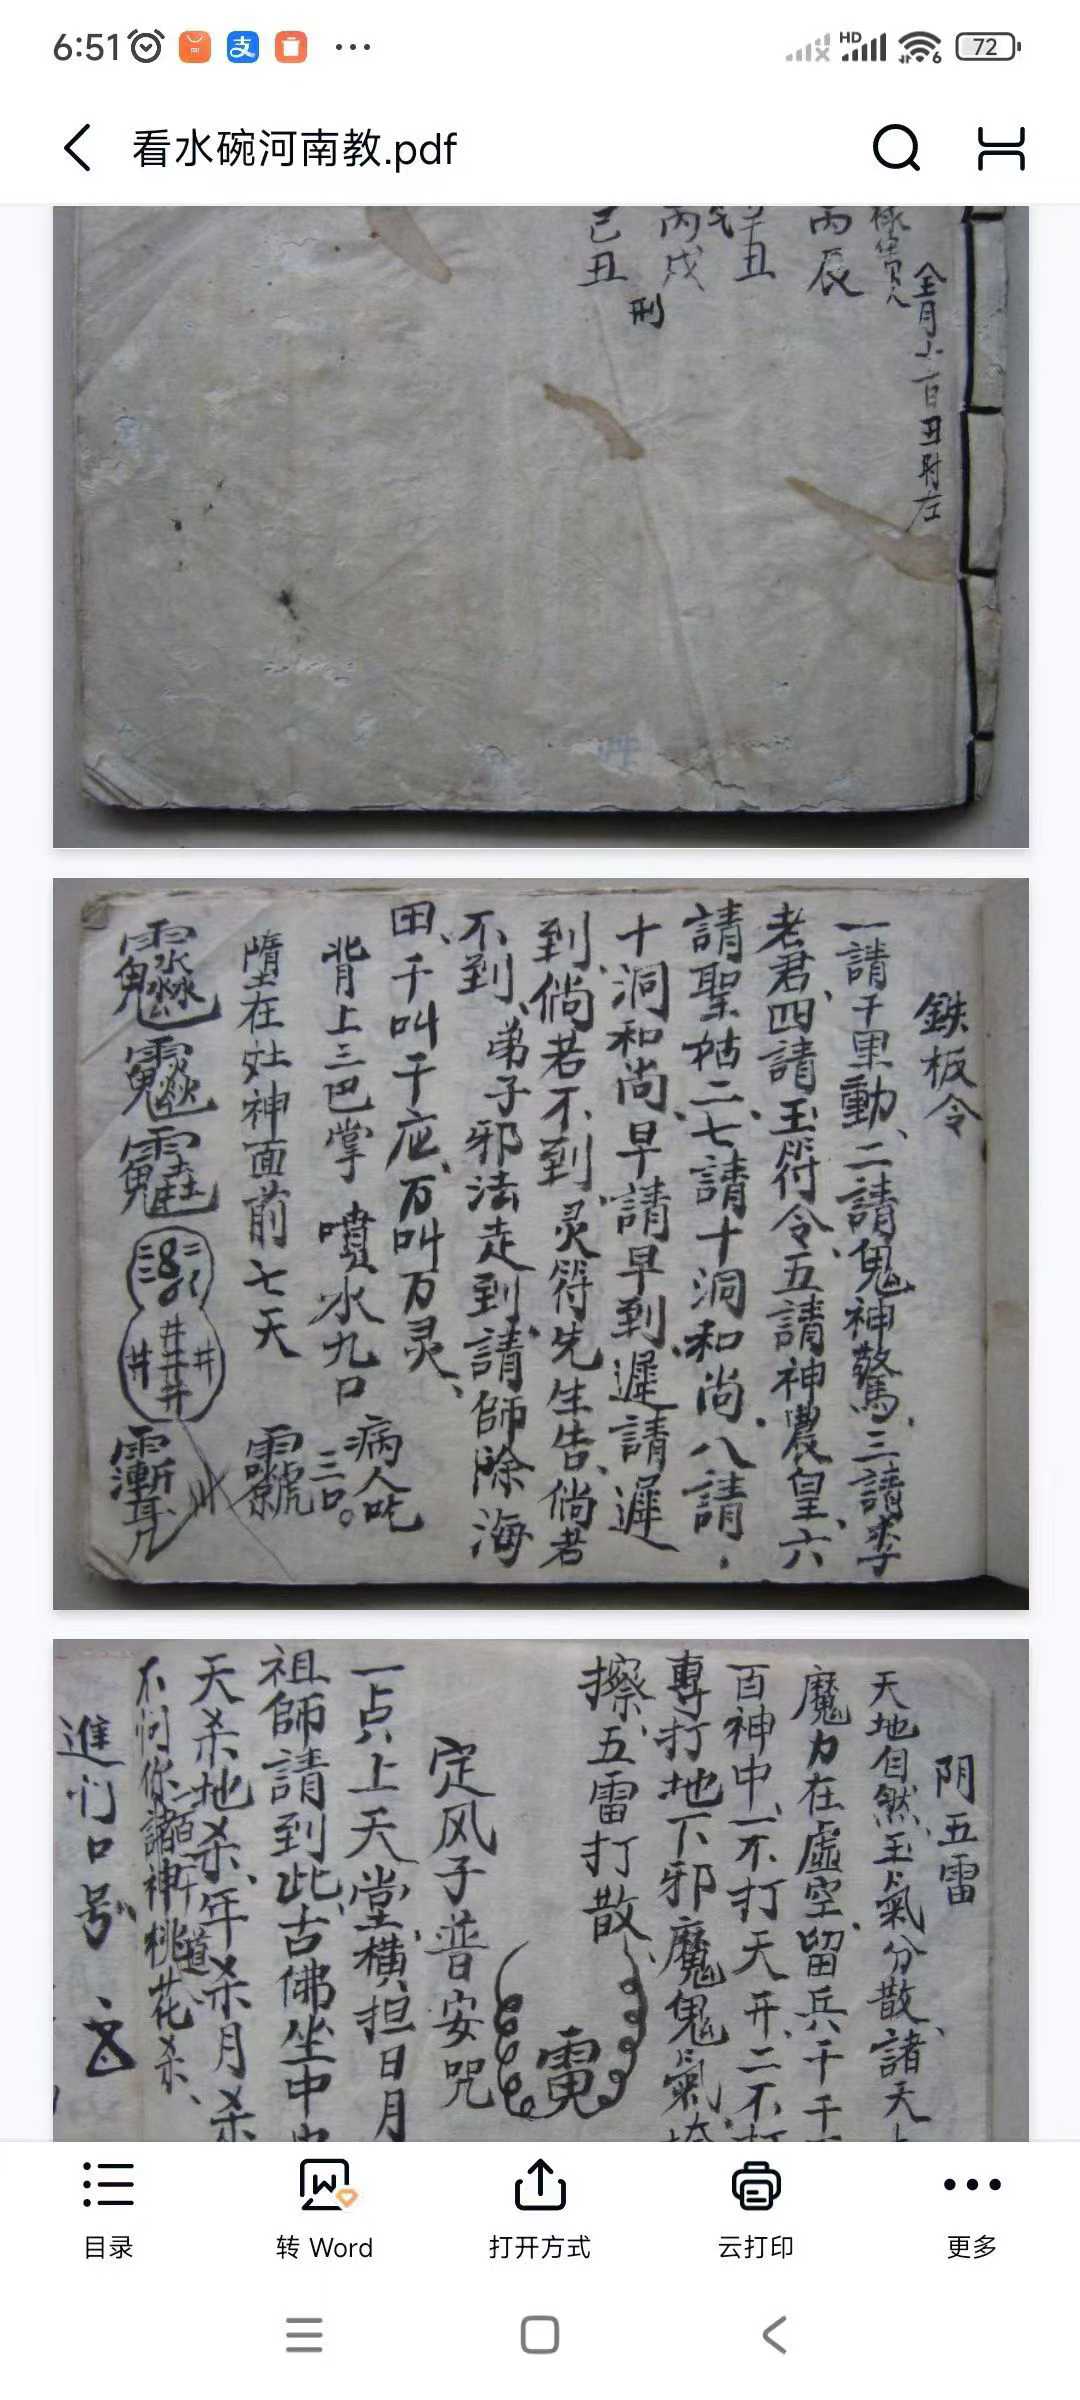 6:51
HD
6
72
看水碗河南教.pdf
丙辰
辛丑
丙戌
己丑
刑
鉄板令
一請千里動、二請鬼神驚、三請李
老君、四請玉符令、五請神農皇、六
請聖姑二、七請十洞和尚、八請、
十洞和尚、早請早到、遲請遲
到、倘若不到、灵符先生告、倘若
不到、弟子邪法走到、請師除海
田、千叫千应、万叫万灵、
背上三巴掌 噴水九口 病人吃三口。
墮在灶神面前七天
井 井 井 井 井
阴五雷
天地自然、玉氣分散、諸天
魔力在虛空、留兵千千
百神中、一不打天开、二不打
專打地下邪魔鬼氣
擦、五雷打散、
定风子普安咒
一点上天堂、横担日月
祖師請到此、古佛坐中
天杀地杀、年杀月杀
不问你諸神桃花杀、
進门口号
目录
转 Word
打开方式
云打印
更多